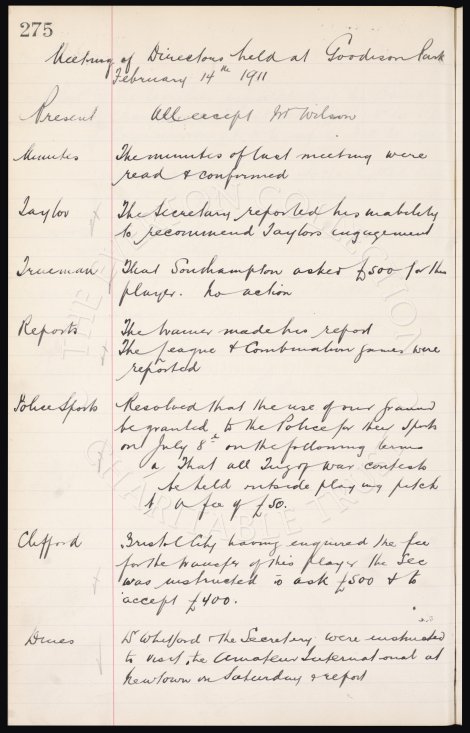 275
Meeting of Directors held at Goodison Park
February 14th 1911
Present All except Mr Wilson
Minutes The minutes of last meeting were
read & confirmed
Taylor The Secretary reported his inability
to recommend Taylors engagement
Trueman That Southampton asked £500 for this
player. No action
Reports The trainer made his report
The League & Combination games were
reported
Police Sports Resolved that the use of our ground
be granted to the Police for their Sports
on July 8th on the following terms
a That all Tug of war contests
be held outside playing pitch
b A fee of £50.
Clifford Bristol City having enquired the fee
for the transfer of this player the Sec
was instructed to ask £500 & to
accept £400.
Dines Dr Whitford & the Secretary were instructed
to visit the Amateur International at
Newtown on Saturday & report